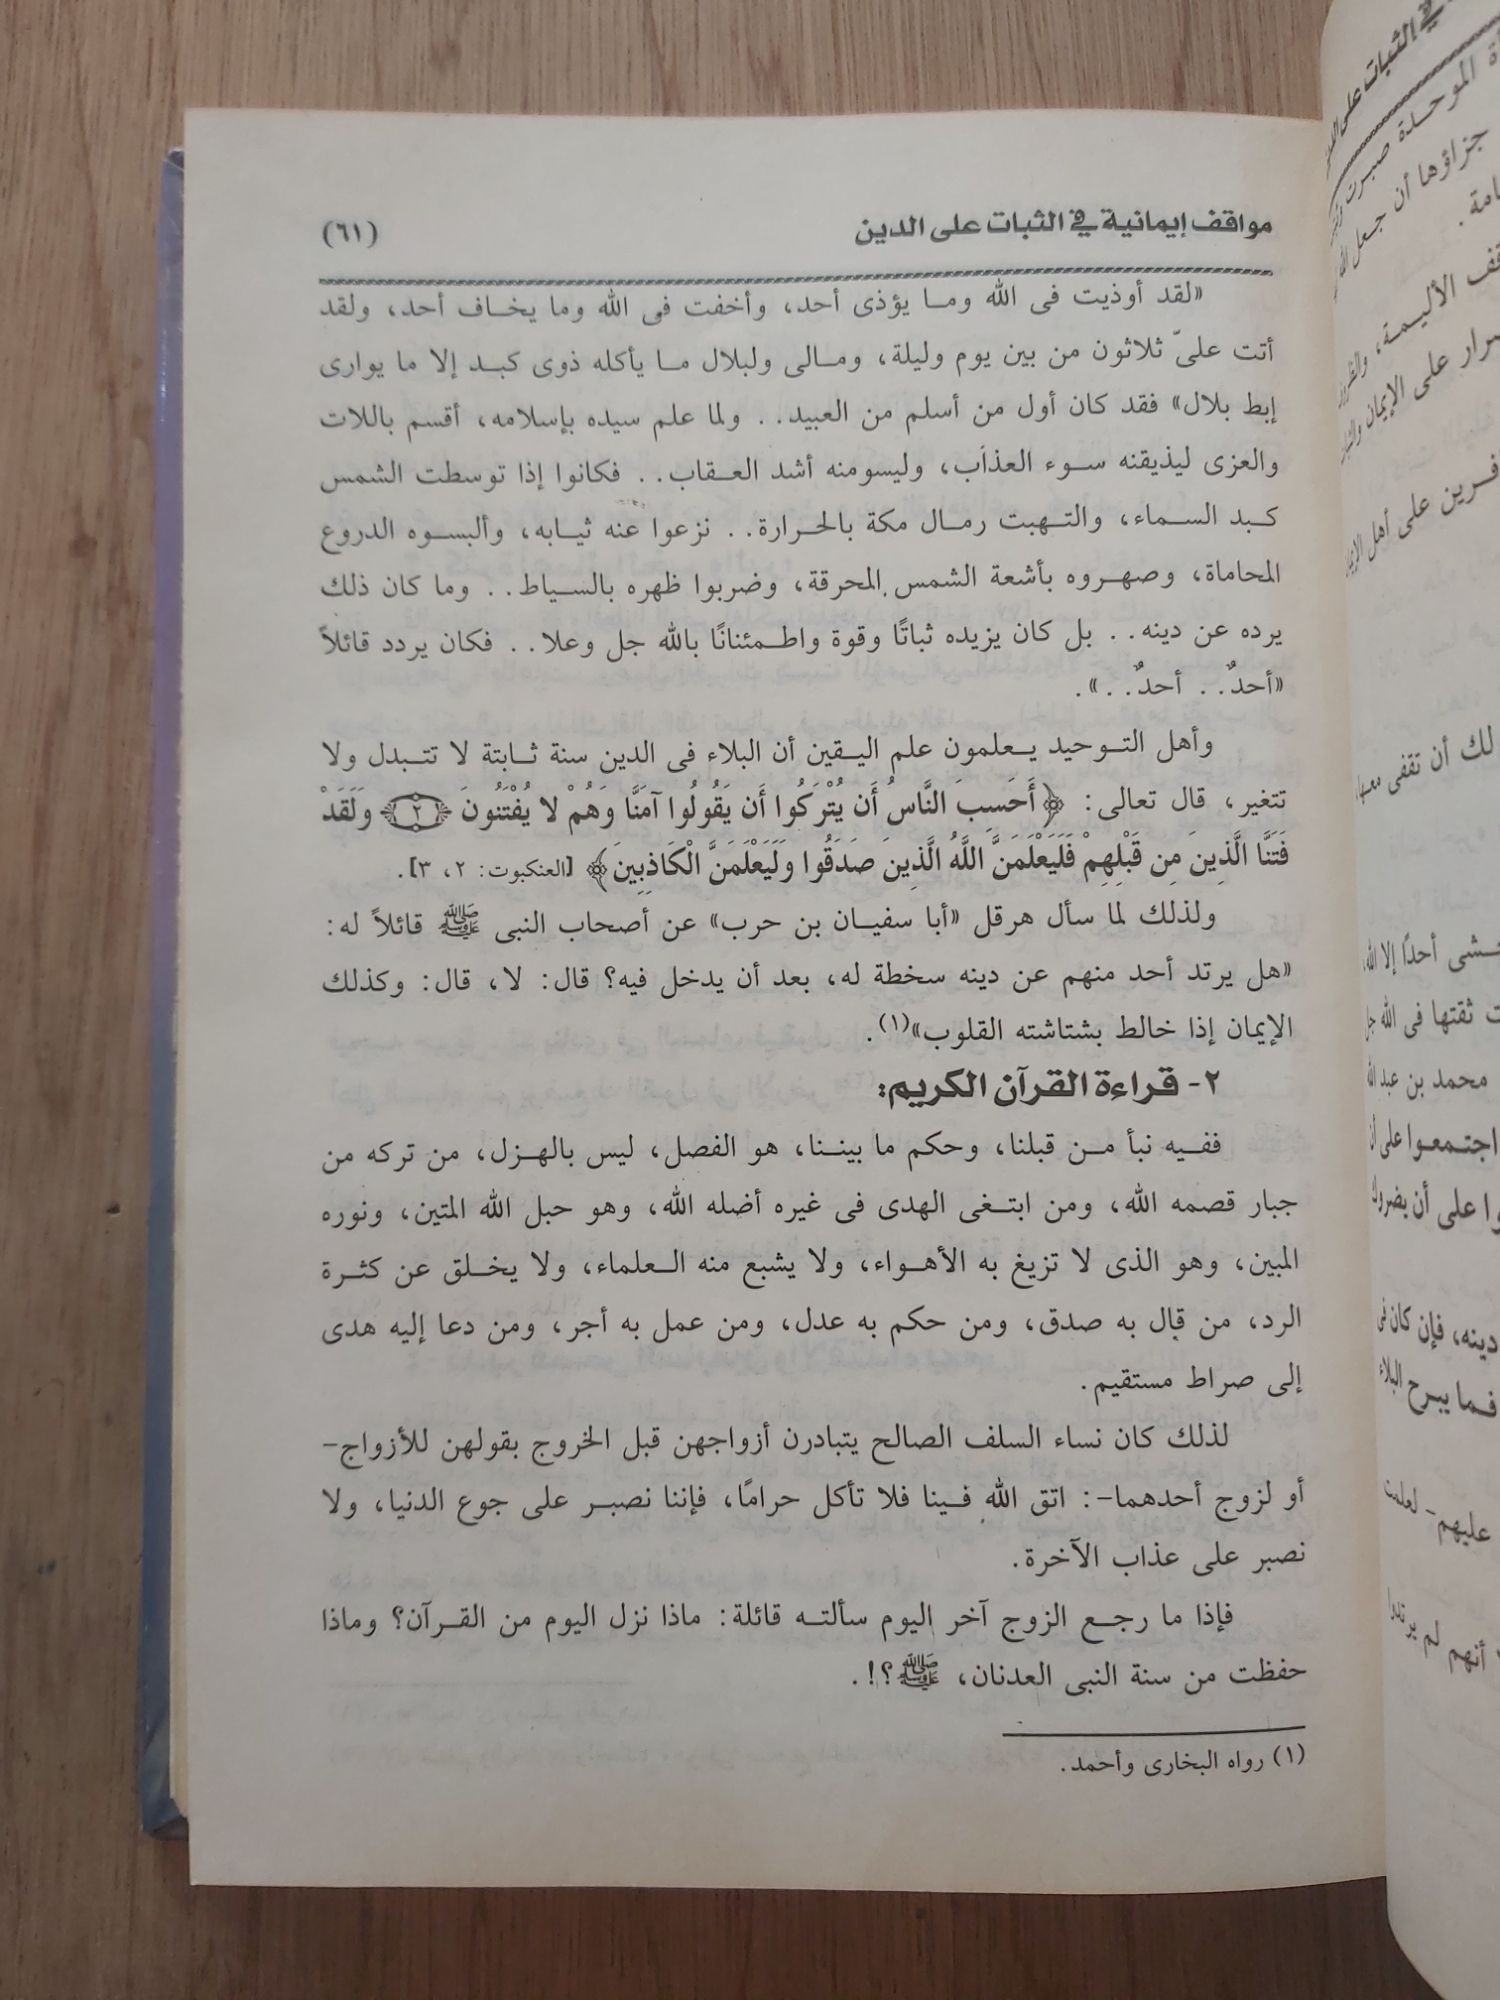 مواقف إيمانية في الثبات على الدين (٦١)
«لقد أوذيت فى الله وما يؤذى أحد، وأخفت فى الله وما يخاف أحد، ولقد
أتت علىّ ثلاثون من بين يوم وليلة، ومالى ولبلال ما يأكله ذوى كبد إلا ما يوارى
إبط بلال» فقد كان أول من أسلم من العبيد.. ولما علم سيده بإسلامه، أقسم باللات
والعزى ليذيقنه سوء العذاب، وليسومنه أشد العقاب.. فكانوا إذا توسطت الشمس
كبد السماء، والتهبت رمال مكة بالحرارة.. نزعوا عنه ثيابه، وألبسوه الدروع
المحاماة، وصهروه بأشعة الشمس المحرقة، وضربوا ظهره بالسياط.. وما كان ذلك
يرده عن دينه.. بل كان يزيده ثباتًا وقوة واطمئنانًا بالله جل وعلا.. فكان يردد قائلاً
«أحدٌ.. أحدٌ..».
وأهل التوحيد يعلمون علم اليقين أن البلاء فى الدين سنة ثابتة لا تتبدل ولا
تتغير، قال تعالى: ﴿أَحَسِبَ النَّاسُ أَن يُتْرَكُوا أَن يَقُولُوا آمَنَّا وَهُمْ لا يُفْتَنُونَ ﴿٢﴾ وَلَقَدْ
فَتَنَّا الَّذِينَ مِن قَبْلِهِمْ فَلَيَعْلَمَنَّ اللَّهُ الَّذِينَ صَدَقُوا وَلَيَعْلَمَنَّ الْكَاذِبِينَ﴾ [العنكبوت: ٢، ٣].
ولذلك لما سأل هرقل «أبا سفيان بن حرب» عن أصحاب النبى ﷺ قائلاً له:
«هل يرتد أحد منهم عن دينه سخطة له، بعد أن يدخل فيه؟ قال: لا، قال: وكذلك
الإيمان إذا خالط بشتاشته القلوب»(١).
٢- قراءة القرآن الكريم:
ففيه نبأ من قبلنا، وحكم ما بيننا، هو الفصل، ليس بالهزل، من تركه من
جبار قصمه الله، ومن ابتغى الهدى فى غيره أضله الله، وهو حبل الله المتين، ونوره
المبين، وهو الذى لا تزيغ به الأهواء، ولا يشبع منه العلماء، ولا يخلق عن كثرة
الرد، من قال به صدق، ومن حكم به عدل، ومن عمل به أجر، ومن دعا إليه هدى
إلى صراط مستقيم.
لذلك كان نساء السلف الصالح يتبادرن أزواجهن قبل الخروج بقولهن للأزواج-
أو لزوج أحدهما-: اتق الله فينا فلا تأكل حرامًا، فإننا نصبر على جوع الدنيا، ولا
نصبر على عذاب الآخرة.
فإذا ما رجع الزوج آخر اليوم سألته قائلة: ماذا نزل اليوم من القرآن؟ وماذا
حفظت من سنة النبى العدنان، ﷺ؟!.
(١) رواه البخارى وأحمد.
في الثبات على
الموحدة صبرت
جزاؤها أن جعل الله
الأليمة، والظروف
على الإيمان
على أهل
لك أن تقفى معها
أحدًا إلا الله
ثقتها فى الله
محمد بن عبد الله
اجتمعوا على
على أن يضروك
دينه، فإن كان فى
فما يبرح البلاء
عليهم- لعلمت
أنهم لم يرتدوا